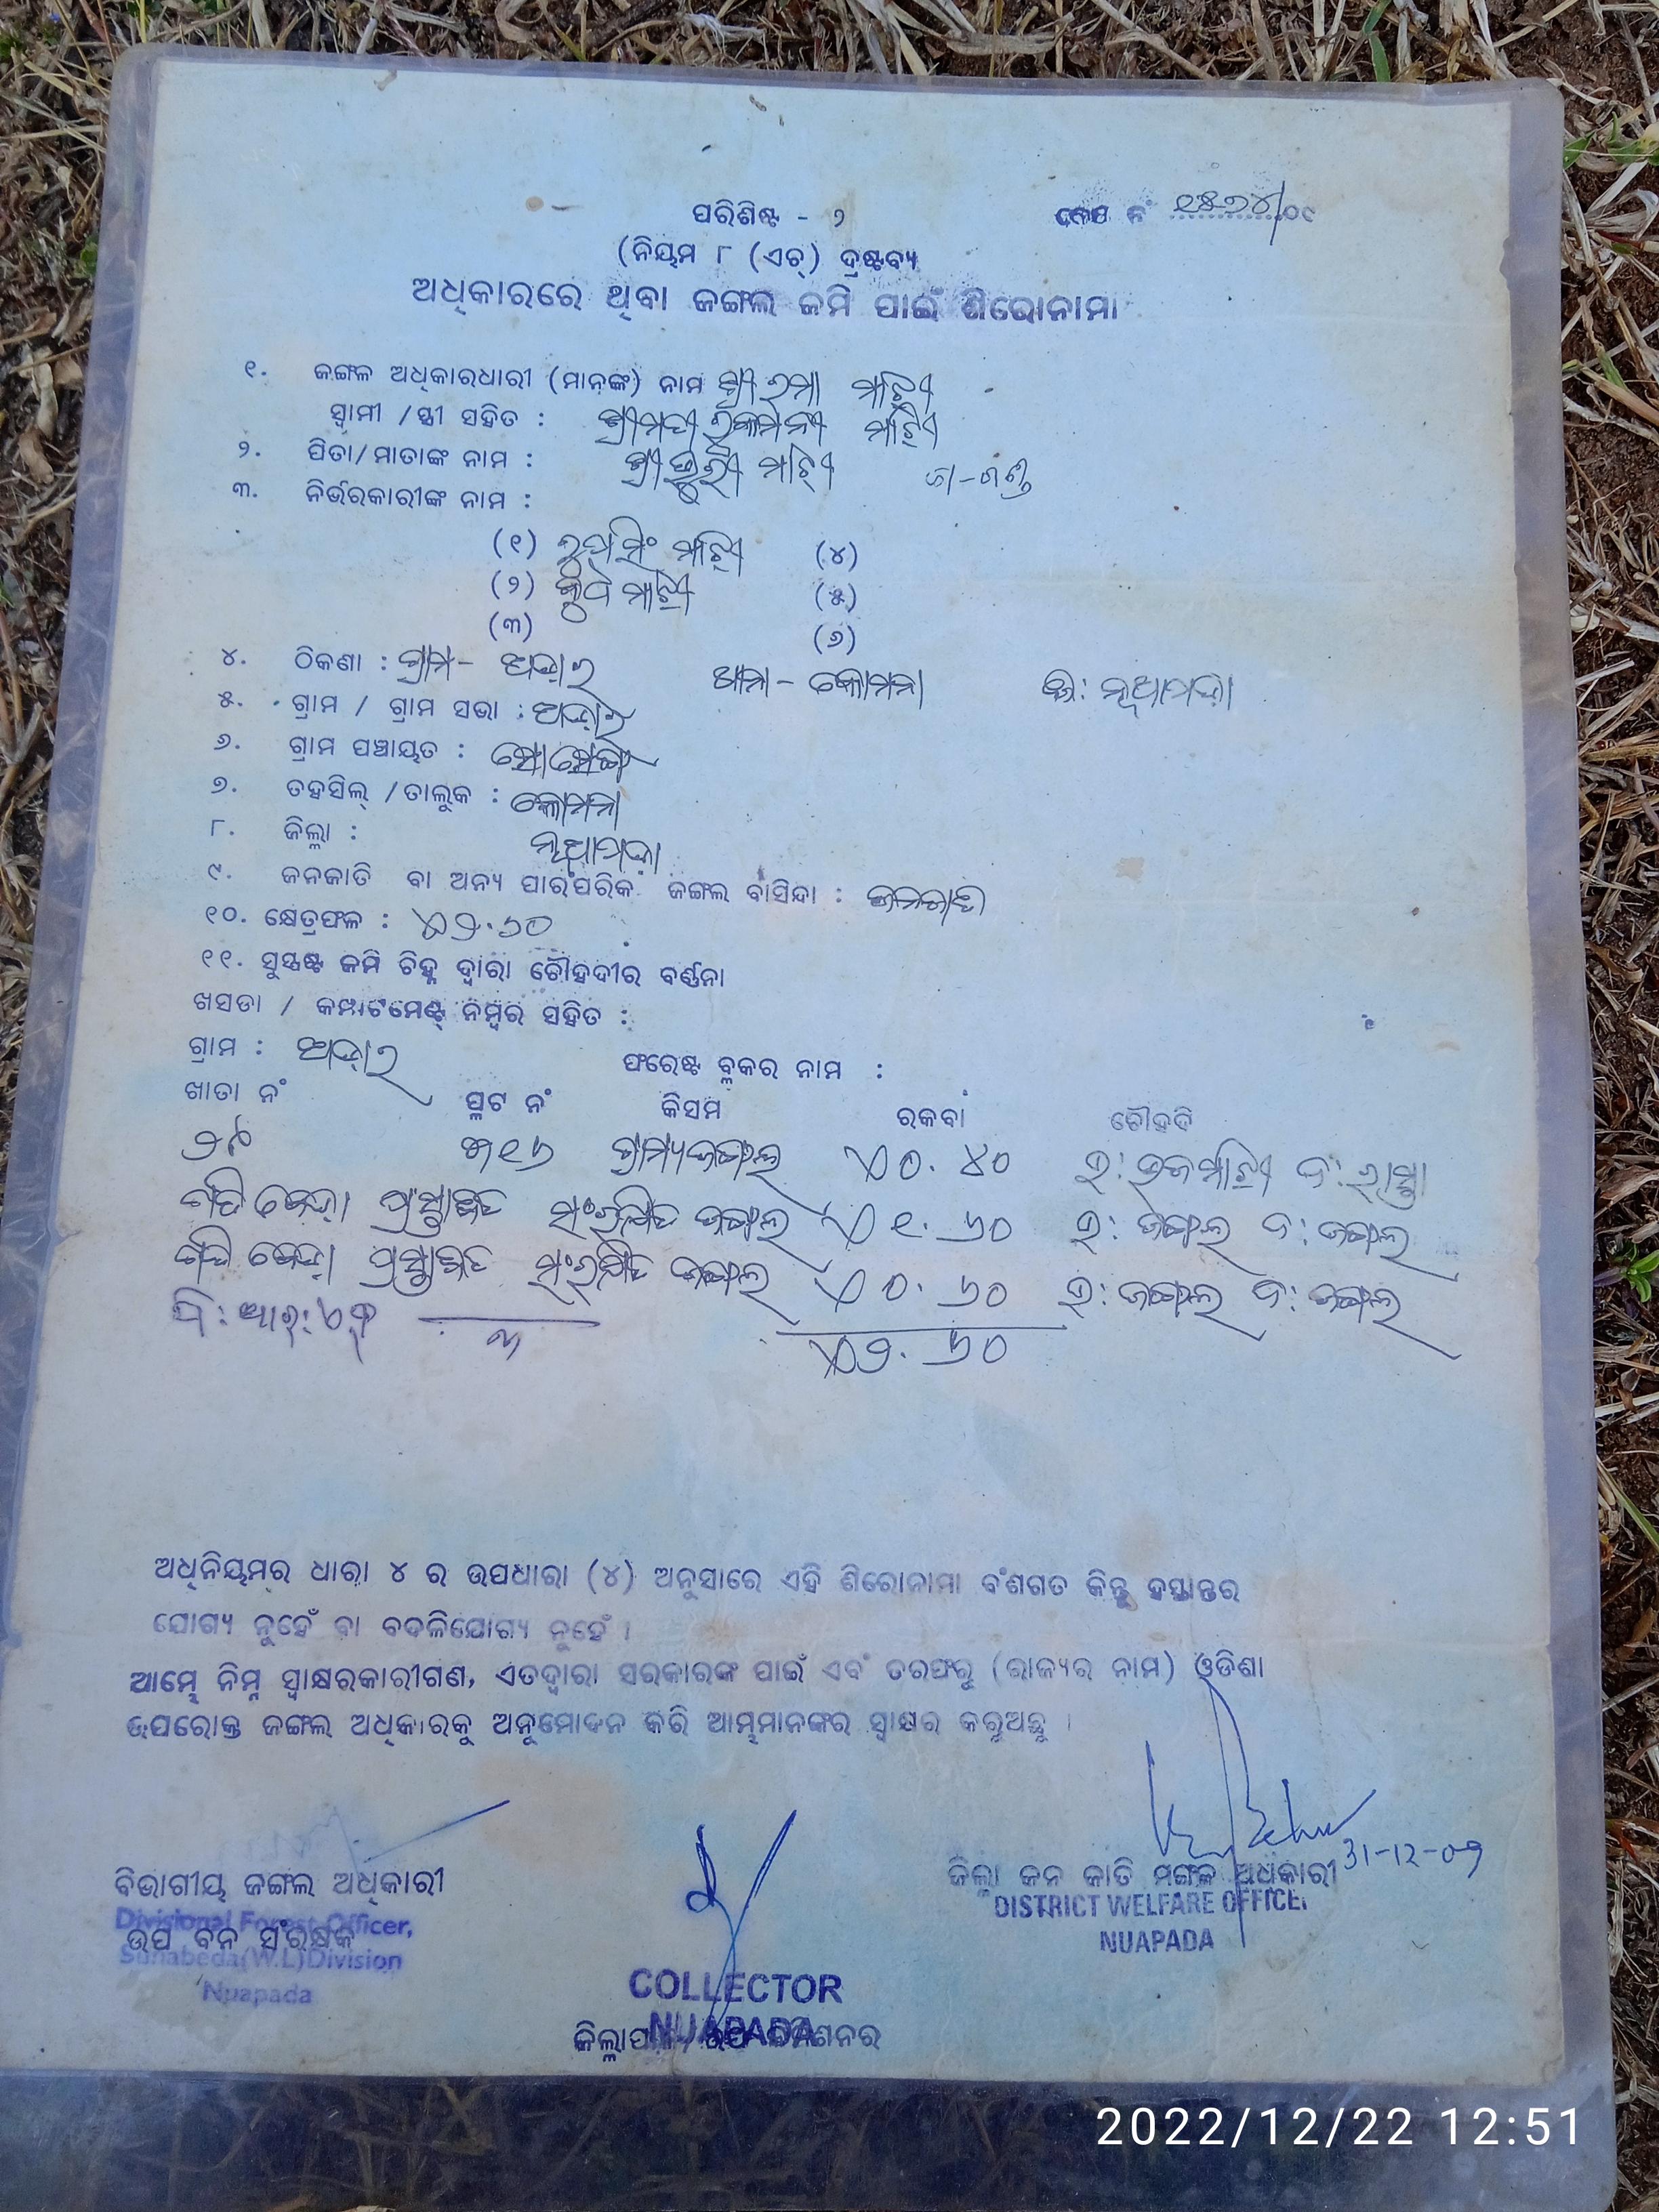 ପରିଶିଷ୍ଟ - ୨
କେସ ନଂ ୧୫୭୪/୦୯
(ନିୟମ ୮ (ଏଚ୍) ଦ୍ରଷ୍ଟବ୍ୟ
ଅଧିକାରରେ ଥିବା ଜଙ୍ଗଲ ଜମି ପାଇଁ ଶିରୋନାମା
୧. ଜଙ୍ଗଳ ଅଧିକାରଧାରୀ (ମାନଙ୍କ) ନାମ ଶ୍ରୀ ରମା ମାଝୀ
ସ୍ଵାମୀ / ସ୍ତ୍ରୀ ସହିତ : ଶ୍ରୀମତୀ ରୁକମନୀ ମାଝୀ
୨. ପିତା/ମାତାଙ୍କ ନାମ : ଶ୍ରୀ ମାଝୀ ଜା-ଗଣ୍ଡ
୩. ନିର୍ଭରକାରୀଙ୍କ ନାମ :
(୧) ରୁପସିଂ ମାଝୀ (୪)
(୨) ମାଝୀ (୫)
(୩) (୬)
୪. ଠିକଣା : ଗ୍ରାମ- ଥାନା - କୋମନା ଜି: ନୂଆପଡ଼ା
୫. ଗ୍ରାମ / ଗ୍ରାମ ସଭା :
୬. ଗ୍ରାମ ପଞ୍ଚାୟତ :
୭. ତହସିଲ୍ /ତାଲୁକ : କୋମନା
୮. ଜିଲ୍ଲା : ନୂଆପଡ଼ା
୯. ଜନଜାତି ବା ଅନ୍ୟ ପାରଂପରିକ ଜଙ୍ଗଲ ବାସିନ୍ଦା : ଜନଜାତି
୧୦. କ୍ଷେତ୍ରଫଳ : ୨.୬୦
୧୧. ସୁସ୍ପଷ୍ଟ ଜମି ଚିହ୍ନ ଦ୍ଵାରା ଚୌହଦୀର ବର୍ଣ୍ଣନା
ଖସଡା / କମ୍ପାଟମେଣ୍ଟ୍ ନମ୍ବର ସହିତ :
ଗ୍ରାମ : ଫରେଷ୍ଟ ବ୍ଲକର ନାମ :
ଖାତା ନଂ ପ୍ଲଟ ନଂ କିସମ ରକବା ଚୌହଦି
୨୯ ୩୧୬ ଗ୍ରାମ୍ୟଜଙ୍ଗଲ ୦.୪୦ ଉ: ମାଝୀ ଦ: ରାସ୍ତା
ପ୍ରସ୍ତାବିତ ସଂରକ୍ଷିତ ଜଙ୍ଗଲ ୧.୬୦ ଉ: ଜଙ୍ଗଲ ଦ: ଜଙ୍ଗଲ
ପ୍ରସ୍ତାବିତ ସଂରକ୍ଷିତ ଜଙ୍ଗଲ ୦.୬୦ ଉ: ଜଙ୍ଗଲ ଦ: ଜଙ୍ଗଲ
ପି: ଆର୍: ଏଫ୍ ୩ ୨.୬୦
ଅଧିନିୟମର ଧାରା ୪ ର ଉପଧାରା (୪) ଅନୁସାରେ ଏହି ଶିରୋନାମା ବଂଶଗତ କିନ୍ତୁ ହସ୍ତାନ୍ତର
ଯୋଗ୍ୟ ନୁହେଁ ବା ବଦଳିଯୋଗ୍ୟ ନୁହେଁ ।
ଆମ୍ଭେ ନିମ୍ନ ସ୍ଵାକ୍ଷରକାରୀଗଣ, ଏତଦ୍ଵାରା ସରକାରଙ୍କ ପାଇଁ ଏବଂ ତରଫରୁ (ରାଜ୍ୟର ନାମ) ଓଡିଶା
ଉପରୋକ୍ତ ଜଙ୍ଗଲ ଅଧିକାରକୁ ଅନୁମୋଦନ କରି ଆମ୍ଭମାନଙ୍କର ସ୍ଵାକ୍ଷର କରୁଅଛୁ ।
31-12-09
ବିଭାଗୀୟ ଜଙ୍ଗଲ ଅଧିକାରୀ
Divisional Forest Officer,
ଉପ ବନ ସଂରକ୍ଷକ
Sunabeda(W.L)Division
Nuapada
ଜିଲ୍ଲା ଜନ ଜାତି ମଙ୍ଗଳ ଅଧିକାରୀ
DISTRICT WELFARE OFFICER
NUAPADA
COLLECTOR
NUAPADA
ଜିଲ୍ଲାପାଳ/ ଉପ କମିଶନର
2022/12/22 12:51